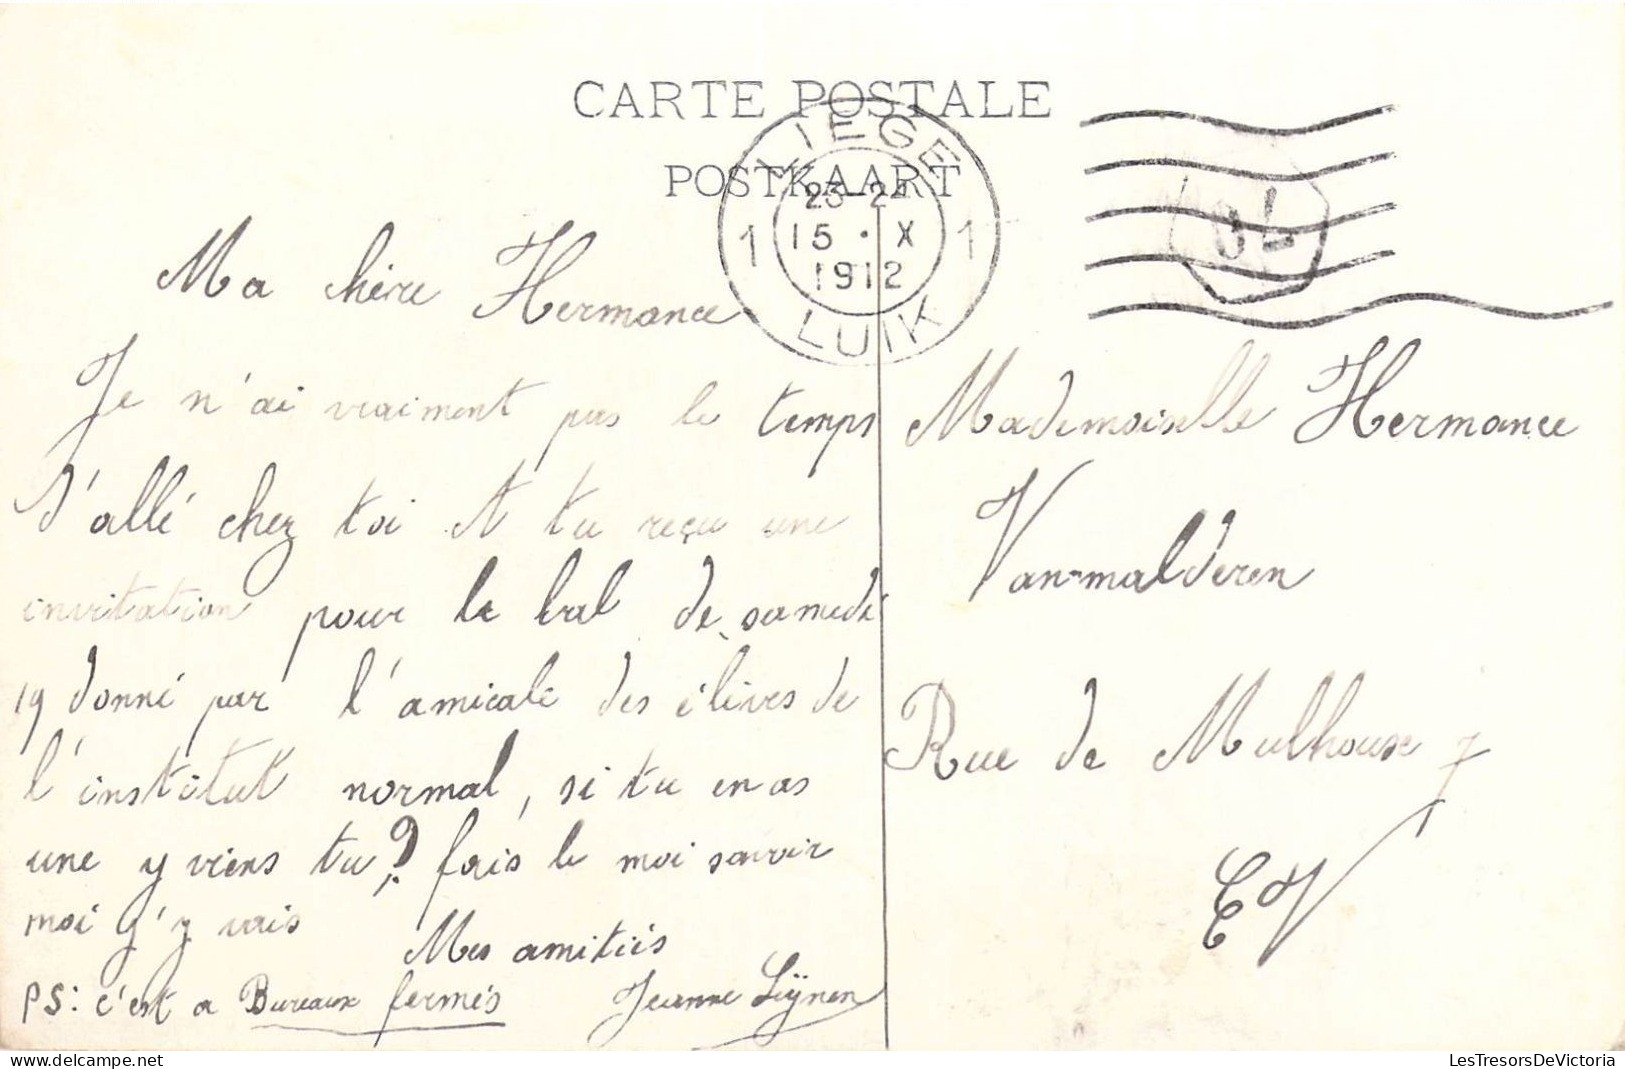 CARTE POSTALE
POSTKAART
LIEGE
1 15 · X 1
1912
LUIK
Ma chère Hermance
Je n'ai vraiment pas le temps
d'allé chez toi A tu reçu une
invitation pour le bal de samedi
19 donné par l'amicale des élèves de
l'institut normal, si tu en as
une y viens tu? fais le moi savoir
moi j'y vais
Mes amitiés
PS: c'est a Bureaux fermés
Jeanne
Mademoiselle Hermance
Van-malderen
Rue de Mulhouse 7
EV
LesTresorsDeVictoria